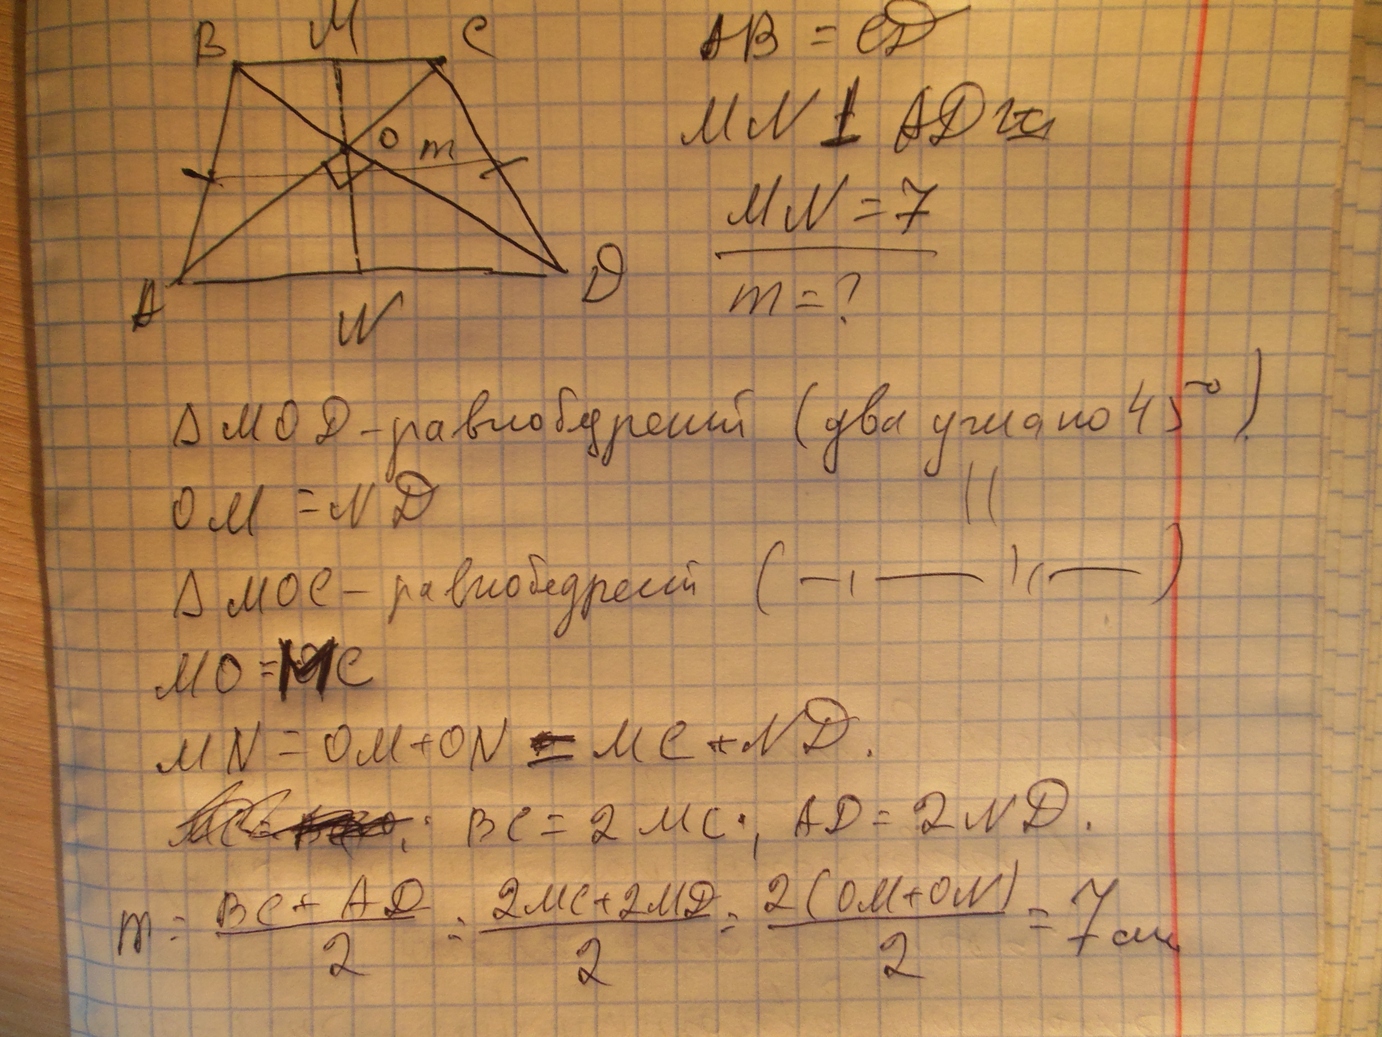 B M C
O m
A N D
AB = CD
MN ⊥ AD
MN = 7
m = ?
Δ MOD - равнобедрений (два угла по 45°)
OM = ND
Δ MOC - равнобедрений ( — ıı — ıı — )
MO = MC
MN = OM + ON = MC + ND.
BC = 2 MC; AD = 2ND.
m = BC + AD / 2 = 2MC + 2MD / 2 = 2(OM + ON) / 2 = 7 см